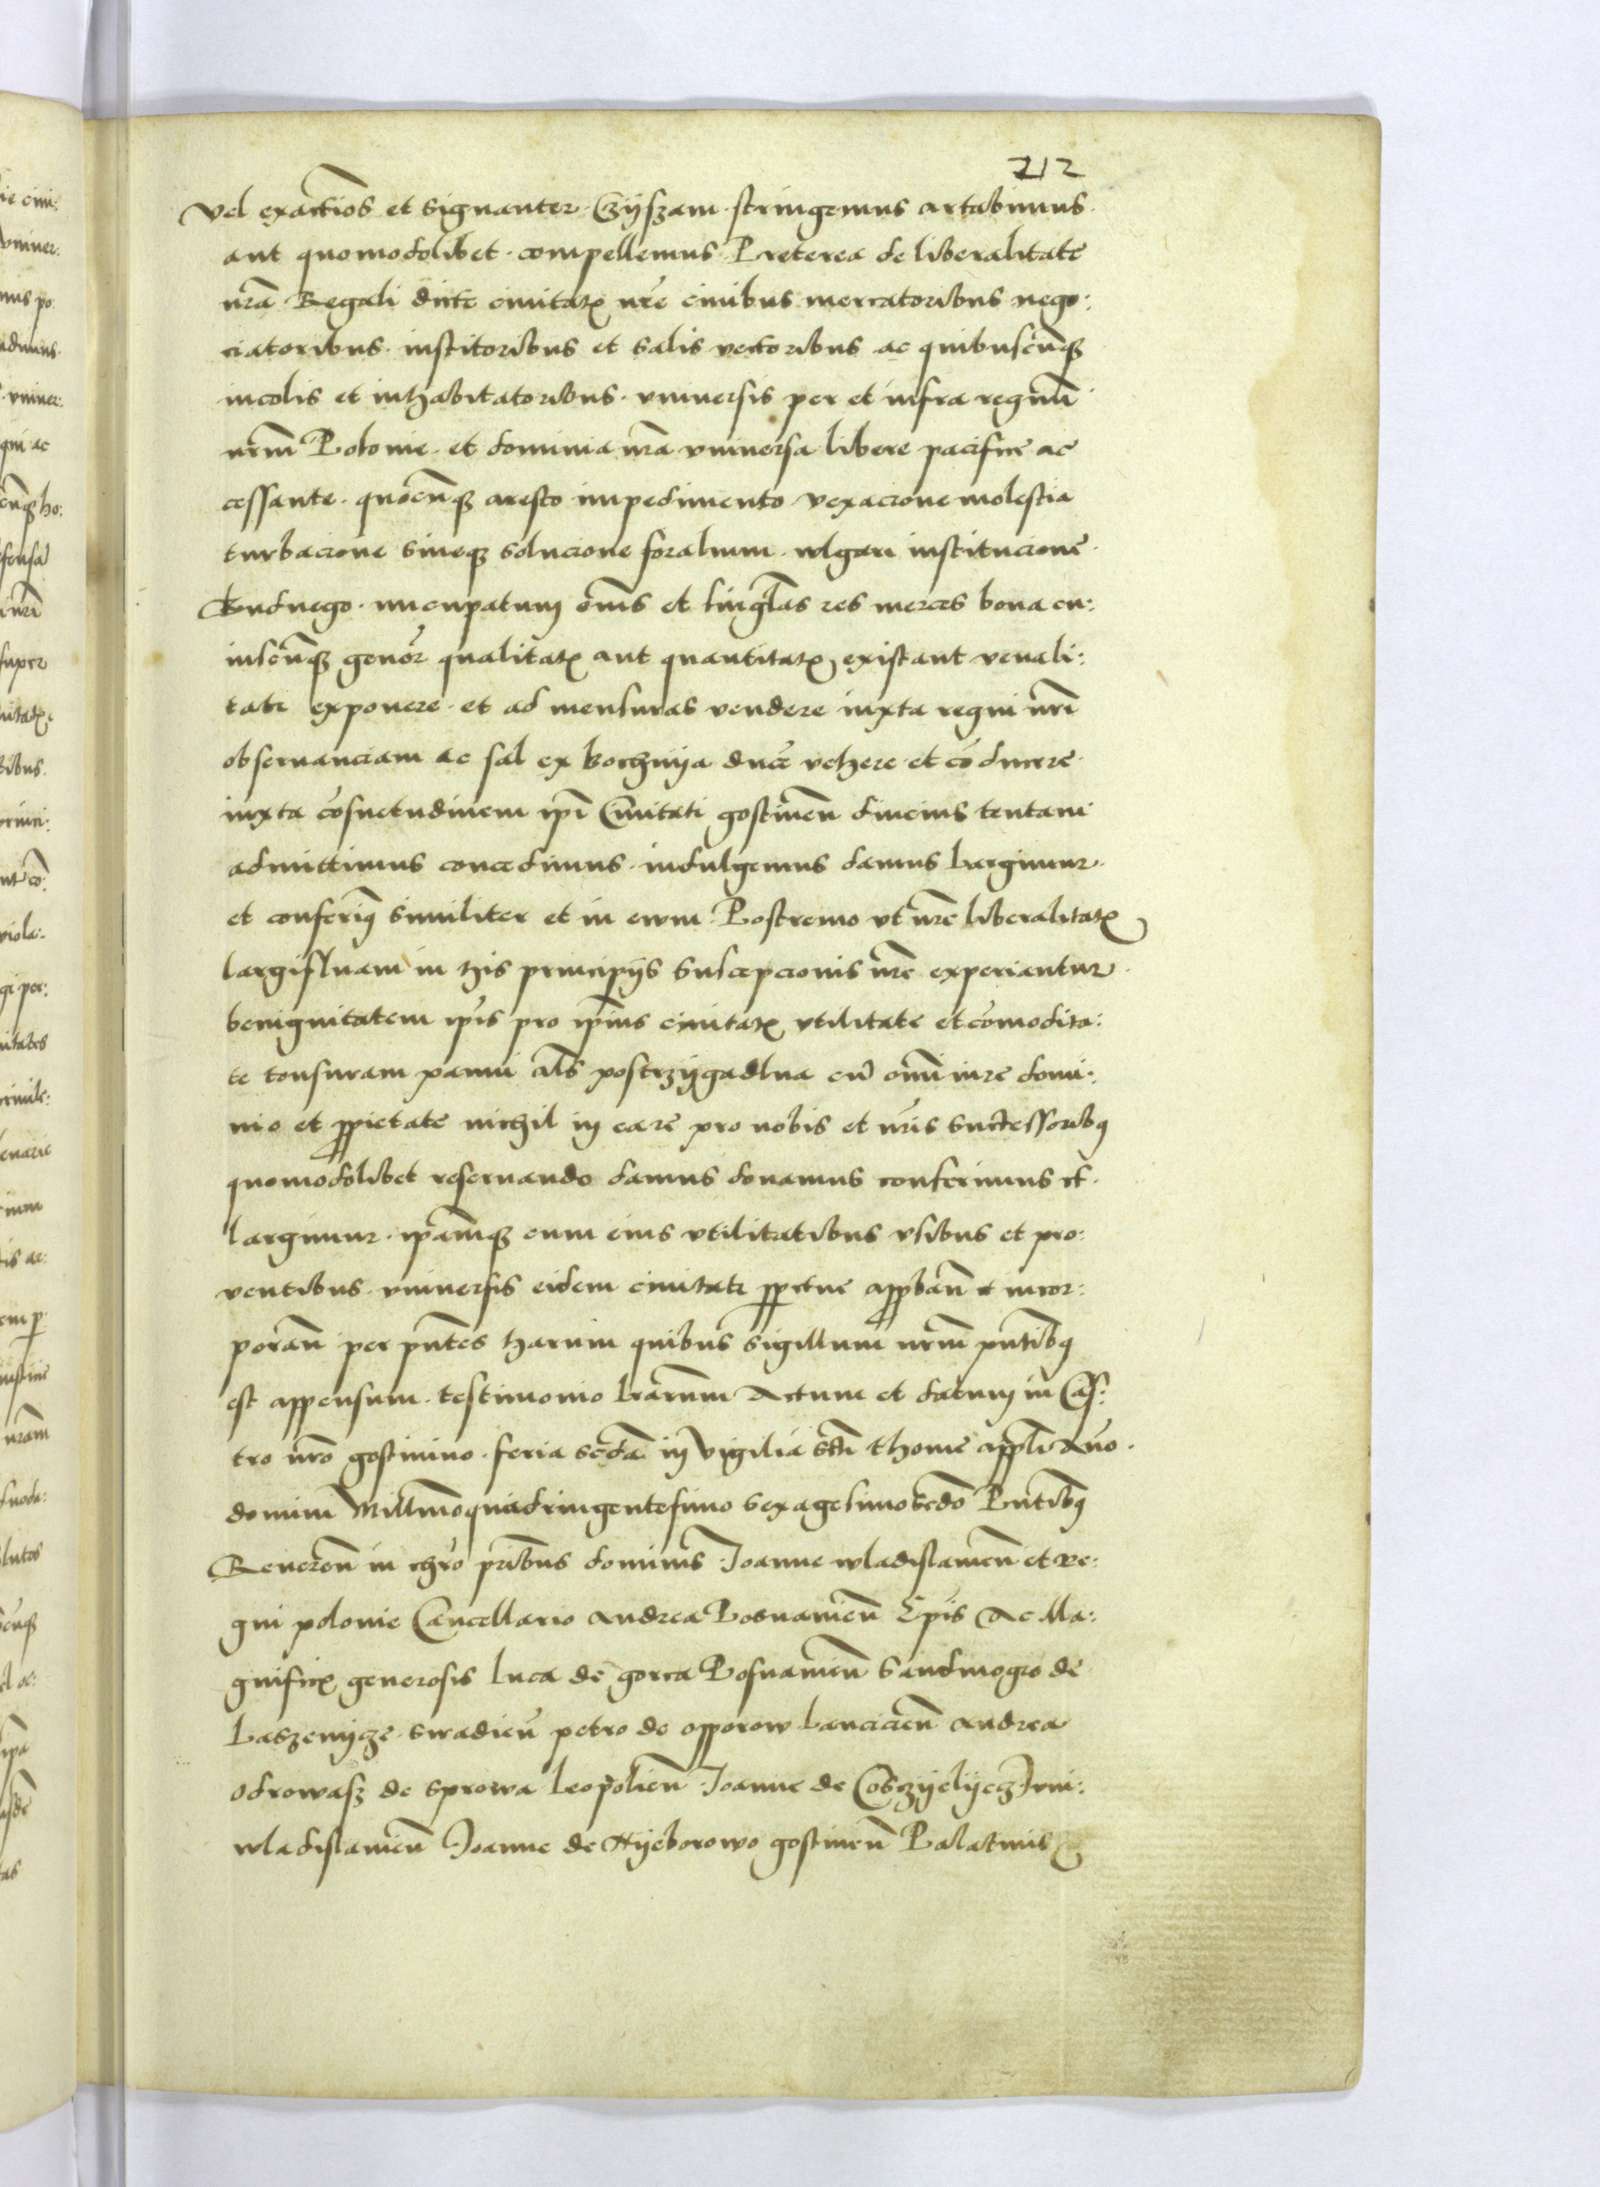 212
vel exactiōs et signanter. Czÿszam. stringemus artabimus.
aut quomodolibet. compellemus Preterea de liberalitate
nr̄a Regali dicte ciuitatꝭ nr̄e ciuibus mercatoribus nego:
ciatoribus. institoribus et salis vectoribus ac quibuscūqꝫ
incolis et inhabitatoribus. vniuersis per et infra regnū
nrm̄ Polonie. et dominia nr̄a vniuersa libere pacifice ac
cessante. quocūqꝫ aresto impedimento vexacione molestia
turbacione sineqꝫ solucione foralium. wlgari institucione.
nūcupatum om̄s et singl̄as res merces bona cu:
iuscūqꝫ genōr qualitatꝭ aut quantitatꝭ existant venali:
tati exponere. et ad mensuras vendere iuxta regni nr̄i
obseruanciam ac sal ex Bochnÿa ducē vehere et cōducere.
iuxta cōsuetudinem ip̄i Ciuitati gostinen̄ diucius tentam
admittimus concedimus. indulgemus damus Largimur.
et conferimꝰ similiter et in ewm Postremo vt nr̄e liberalitatꝭ
largifluam in his principijs suscepcionis nr̄e experiantur.
benignitatem ip̄is pro ip̄ius ciuitatꝭ vtilitate et cōmodita:
te tonsuram panni al̄s postrzÿgadlna cū omī iure domi:
nio et ꝓprietate nichil in ea re pro nobis et nr̄is successoribꝰ
quomodolibet reseruando damus donamus conferimus et.
largimur. ip̄amqꝫ cum eius vtilitatibus vsibus et pro:
uentibus. vniuersis eidem ciuitati ꝑpetue appꝓban̄ et incor:
poran̄ per pn̄tes harum quibus sigillum nrm̄ pn̄tibꝰ
est appensum. testimonio lr̄arum Actum et datum in Cas:
tro nr̄o gostinino. feria scd̄a in vigilia scti Thome appl̄i Año.
domini Millmoquadringentesimo sexagesimoscdo Pn̄tibꝰ
Reueren̄ in chr̄o pr̄ibus dominis Joanne wladislauien̄ et Re:
gni polonie Cancellario Andrea Bosnanien̄ Ep̄is Ac Ma:
gnificꝭ generosis Luca de gorca Posnanien̄ Sandiuogio de
Laszenÿcze. siradien̄ petro de opporow Lancicien̄ Andrea
odrowasz de sprowa Leopolien̄ Joanne de Cosczÿelÿecz Juni:
wladislauien̄ Joanne de Nÿeborowo gostinen̄ Palatinis